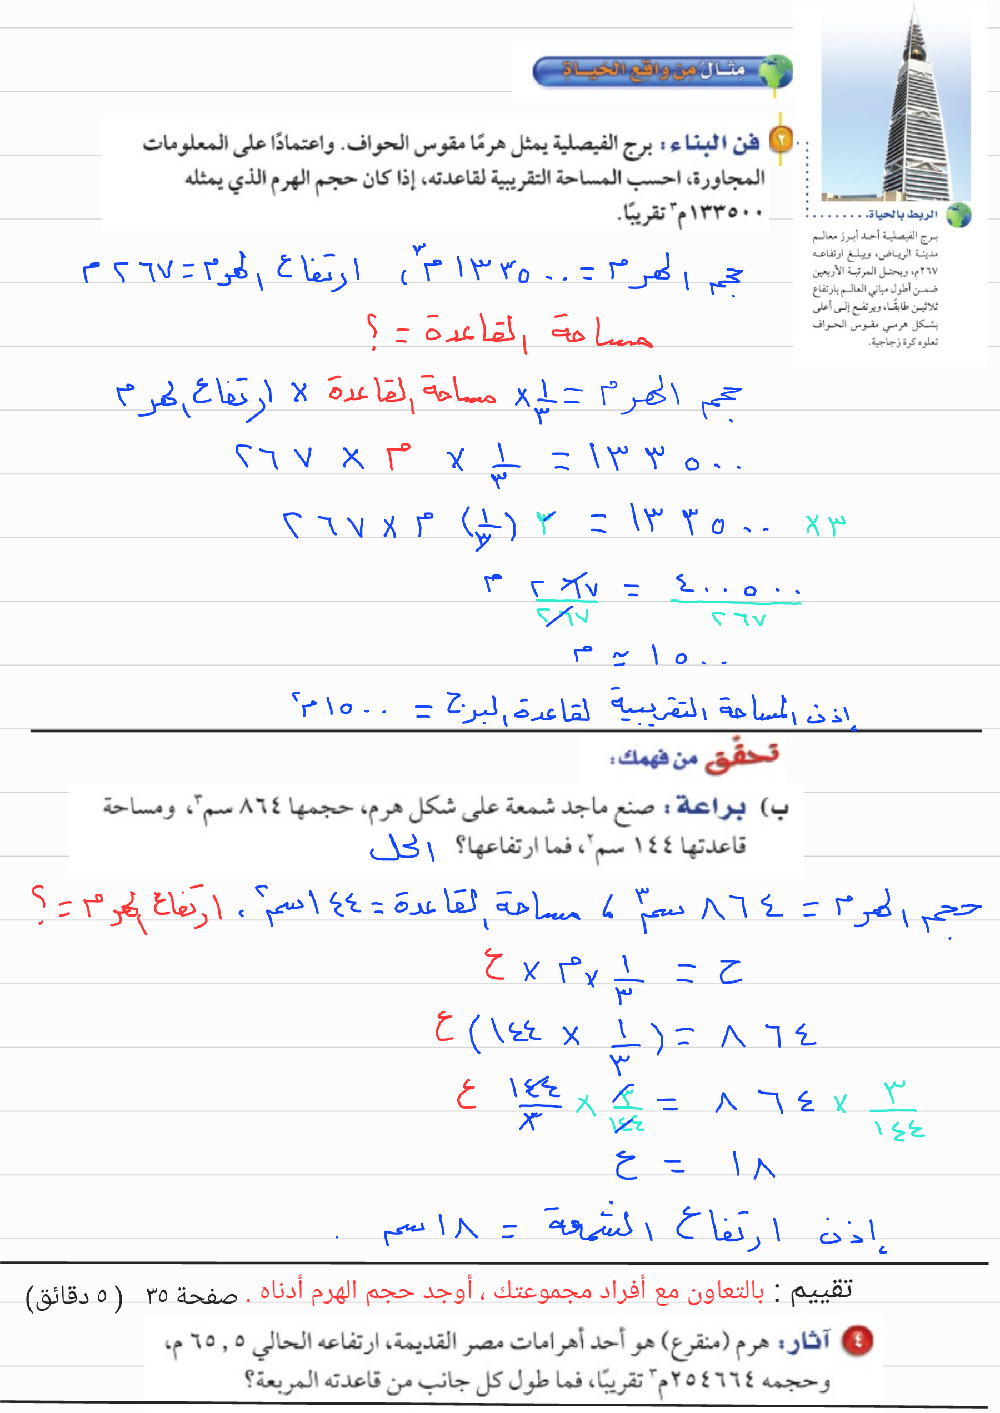 مثال من واقع الحياة
٢ فن البناء: برج الفيصلية يمثل هرمًا مقوس الحواف. واعتمادًا على المعلومات
المجاورة، احسب المساحة التقريبية لقاعدته، إذا كان حجم الهرم الذي يمثله
١٣٣٥٠٠م٣ تقريبًا.
الربط بالحياة
برج الفيصلية أحد أبرز معالم
مدينة الرياض، ويبلغ ارتفاعه
٢٦٧م، ويحتل المرتبة الأربعين
ضمن أطول مباني العالم بارتفاع
ثلاثين طابقًا، ويرتفع إلى أعلى
بشكل هرمي مقوس الحواف
تعلوه كرة زجاجية.
حجم الهرم = ١٣٣٥٠٠م٣، ارتفاع الهرم = ٢٦٧م
مساحة القاعدة = ؟
حجم الهرم = ١/٣ × مساحة القاعدة × ارتفاع الهرم
١٣٣٥٠٠ = ١/٣ × م × ٢٦٧
٣× ١٣٣٥٠٠ = ٣ (١/٣) م × ٢٦٧
٤٠٠٥٠٠/٢٦٧ = ٢٦٧/٢٦٧ م
١٥٠٠ ≈ م
إذن المساحة التقريبية لقاعدة البرج = ١٥٠٠م٢
تحقق من فهمك:
ب) براعة: صنع ماجد شمعة على شكل هرم، حجمها ٨٦٤ سم٣، ومساحة
قاعدتها ١٤٤ سم٢، فما ارتفاعها؟ الحل
حجم الهرم = ٨٦٤ سم٣، مساحة القاعدة = ١٤٤سم٢، ارتفاع الهرم = ؟
ح = ١/٣ × م × ع
٨٦٤ = (١/٣ × ١٤٤) ع
٣/١٤٤ × ٨٦٤ = ٣/١٤٤ × ١٤٤/٣ ع
١٨ = ع
إذن ارتفاع الشمعة = ١٨سم .
تقييم : بالتعاون مع أفراد مجموعتك ، أوجد حجم الهرم أدناه . صفحة ٣٥ ( ٥ دقائق)
٤ آثار: هرم (منقرع) هو أحد أهرامات مصر القديمة، ارتفاعه الحالي ٦٥,٥ م،
وحجمه ٢٥٤٦٦٤م٣ تقريبًا، فما طول كل جانب من قاعدته المربعة؟